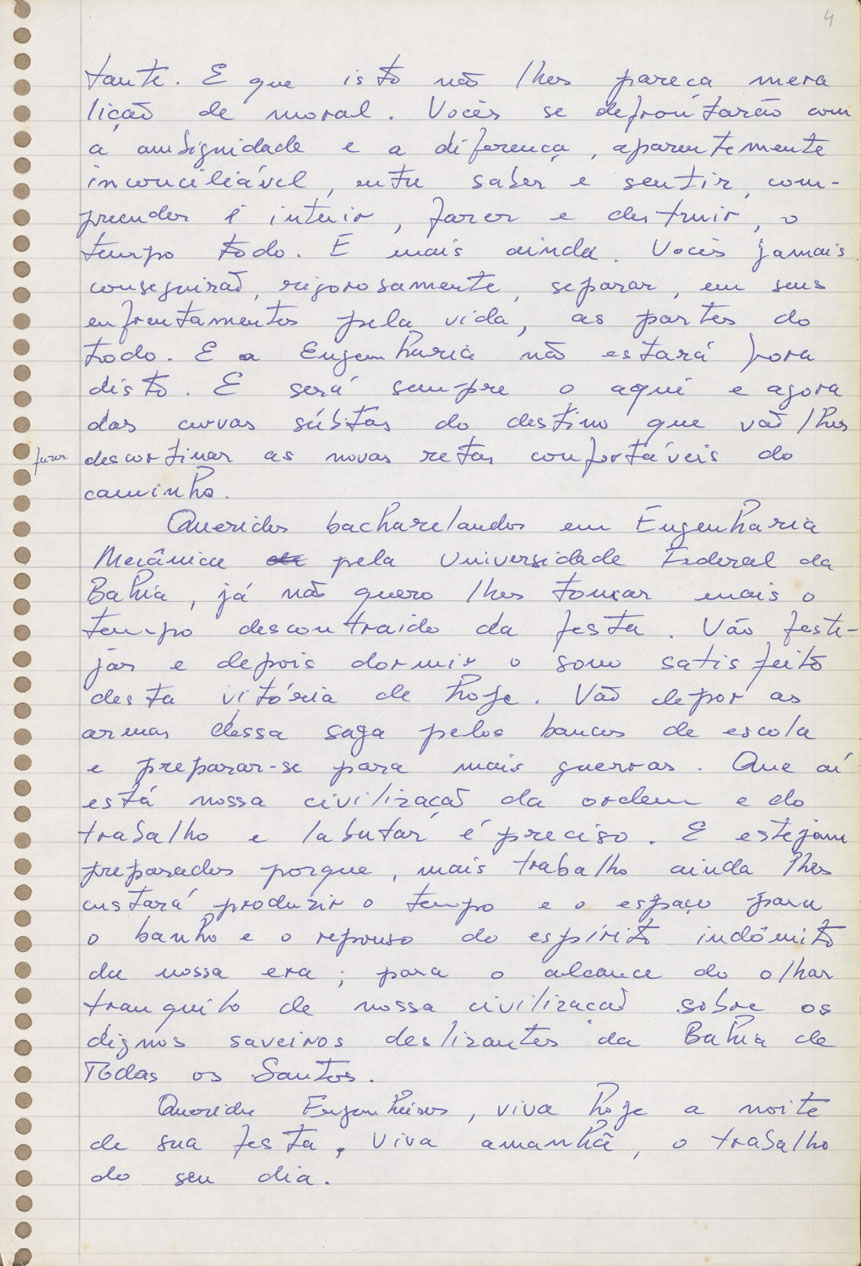 4
tante. E que isto não lhes pareça mera
lição de moral. Vocês se defrontarão com
a ambignidade e a diferença, aparentemente
inconciliável, entre saber e sentir, com-
preender e intuir, fazer e destruir, o
tempo todo. E mais ainda. Vocês jamais
conseguirão, rigorosamente, separar, em seus
enfrentamentos pela vida, as partes do
todo. E a Engenharia não estará fora
disto. E será sempre o aqui e agora
das curvas súbitas do destino que vão lhes
fazer descortinar as novas retas confortáveis do
caminho.
Queridos bacharelandos em Engenharia
Mecânica pela Universidade Federal da
Bahia, já não quero lhes tomar mais o
tempo descontraido da festa. Vão feste-
jar e depois dormir o sono satisfeito
desta vitória de hoje. Vão depor as
armas dessa saga pelos bancos de escola
e preparar-se para mais guerras. Que aí
está nossa civilização da ordem e do
trabalho e labutar é preciso. E estejam
preparados porque, mais trabalho ainda lhes
custará produzir o tempo e o espaço para
o banho e o repouso do espírito indômito
da nossa era; para o alcance do olhar
tranquilo de nossa civilização sobre os
dignos saveiros deslizantes da Bahia de
Todas os Santos.
Queridos Engenheiros, viva hoje a noite
de sua festa, viva amanhã, o trabalho
do seu dia.